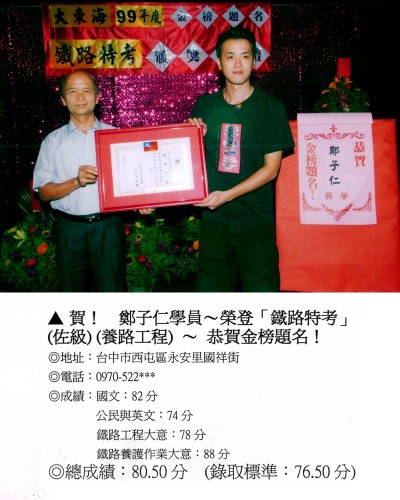 大東海 99年度 金榜題名
鐵路特考 頒獎
恭賀
鄭子仁
同學
金榜題名!
▲ 賀！ 鄭子仁學員～榮登「鐵路特考」
(佐級) (養路工程) ～ 恭賀金榜題名！
◎地址：台中市西屯區永安里國祥街
◎電話：0970-522***
◎成績：國文：82 分
公民與英文：74 分
鐵路工程大意：78 分
鐵路養護作業大意：88 分
◎總成績：80.50 分 (錄取標準：76.50 分)